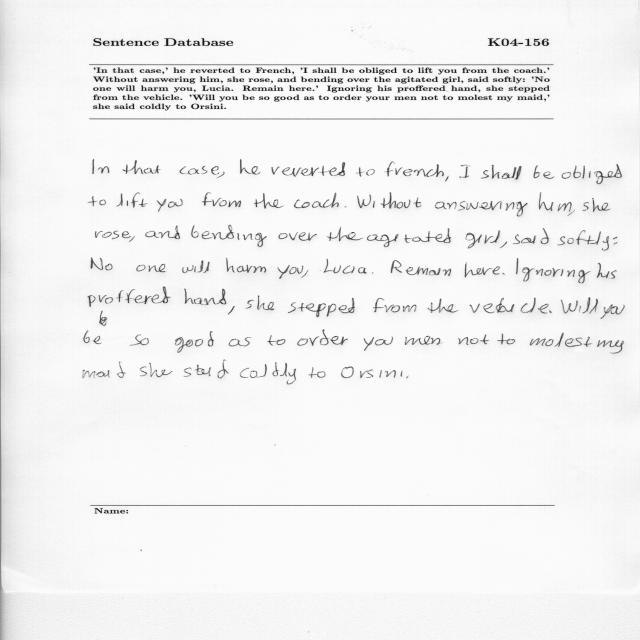 Sentence Database K04-156
'In that case,' he reverted to French, 'I shall be obliged to lift you from the coach.'
Without answering him, she rose, and bending over the agitated girl, said softly: 'No
one will harm you, Lucia. Remain here.' Ignoring his proffered hand, she stepped
from the vehicle. 'Will you be so good as to order your men not to molest my maid,'
she said coldly to Orsini.
In that case, he reverted to french, I shall be obliged
to lift you from the coach. Without answering him, she
rose, and bending over the agitated girl, said softly:
No one will harm you, Lucia. Remain here. Ignoring his
proffered hand, she stepped from the vehicle. Will you
be so good as to order you men not to molest my
maid she said coldly to Orsini.
Name: